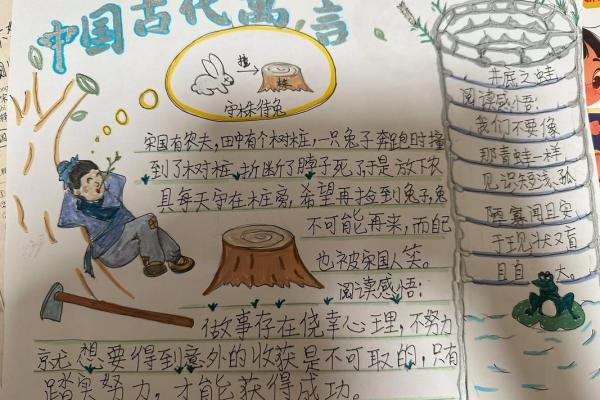 中国古代寓言
撞
株
守株待兔
宋国有农夫,田中有个树桩,一只兔子奔跑时撞
到了树桩,折断了脖子死了于是放下农
具每天守在桩旁,希望再捡到兔子,兔
不可能再来,而配
也被宋国人笑。
阅读感悟:
做事存在侥幸心理,不努力
就想要得到意外的收获是不可取的,只有
踏实努力,才能获得成功。
井底之蛙
阅读感悟:
我们不要像
那青蛙一样
见识短浅,孤
陋寡闻且安
于现状又盲
目自大。